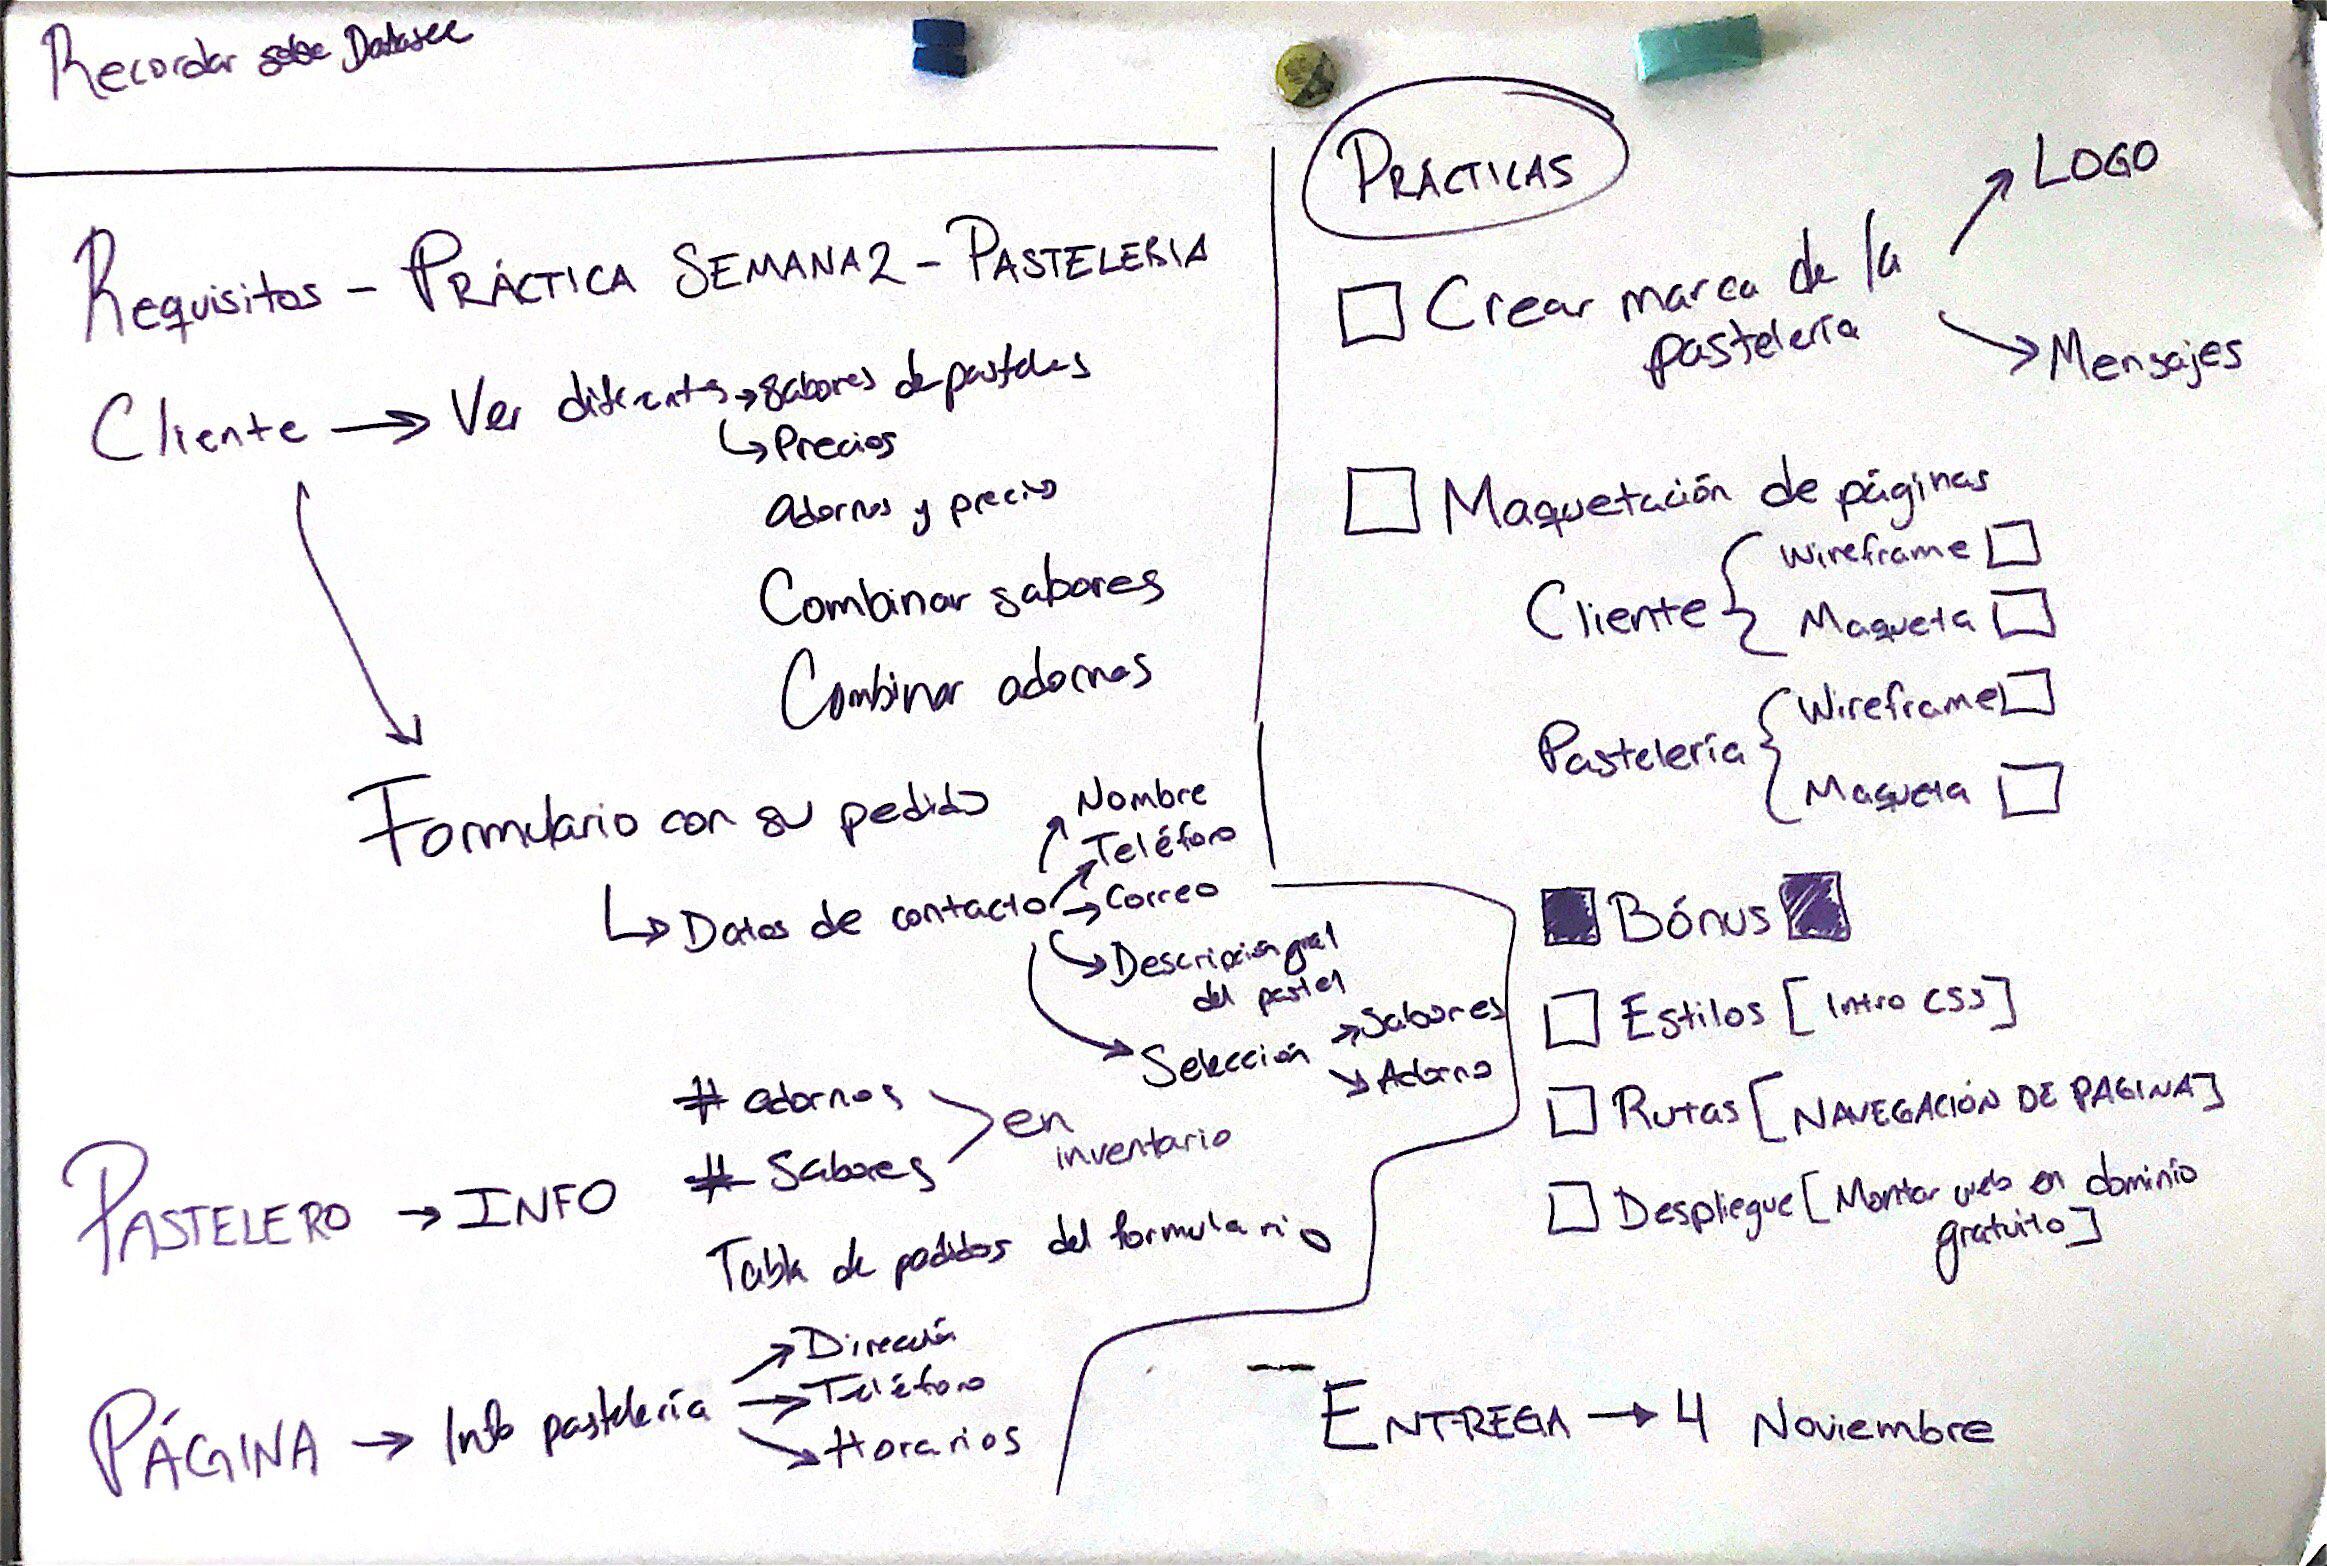 Recordar sobre
Requisitos - PRÁCTICA SEMANA 2 - PASTELERIA
Cliente → Ver diferentes → sabores de pasteles
↳ Precios
adornos y precio
Combinar sabores
Combinar adornos
Formulario con su pedido
↳ Datos de contacto
Nombre
Teléfono
→ Correo
Descripción gral
del pastel
Selección
→ Sabores
↘ Adorno
# adornos
# Sabores
en
inventario
PASTELERO → INFO
Tabla de pedidos del formulario
PÁGINA → Info pastelería
Dirección
Teléfono
Horarios
PRÁCTICAS
☐ Crear marca de la
pastelería
LOGO
Mensajes
☐ Maquetación de páginas
Cliente { Wireframe ☐
Maqueta ☐
Pastelería { Wireframe ☐
Maqueta ☐
■ Bónus ■
☐ Estilos [Intro CSS]
☐ Rutas [NAVEGACIÓN DE PAGINA]
☐ Despliegue [Montar web en dominio
gratuito]
ENTREGA → 4 Noviembre